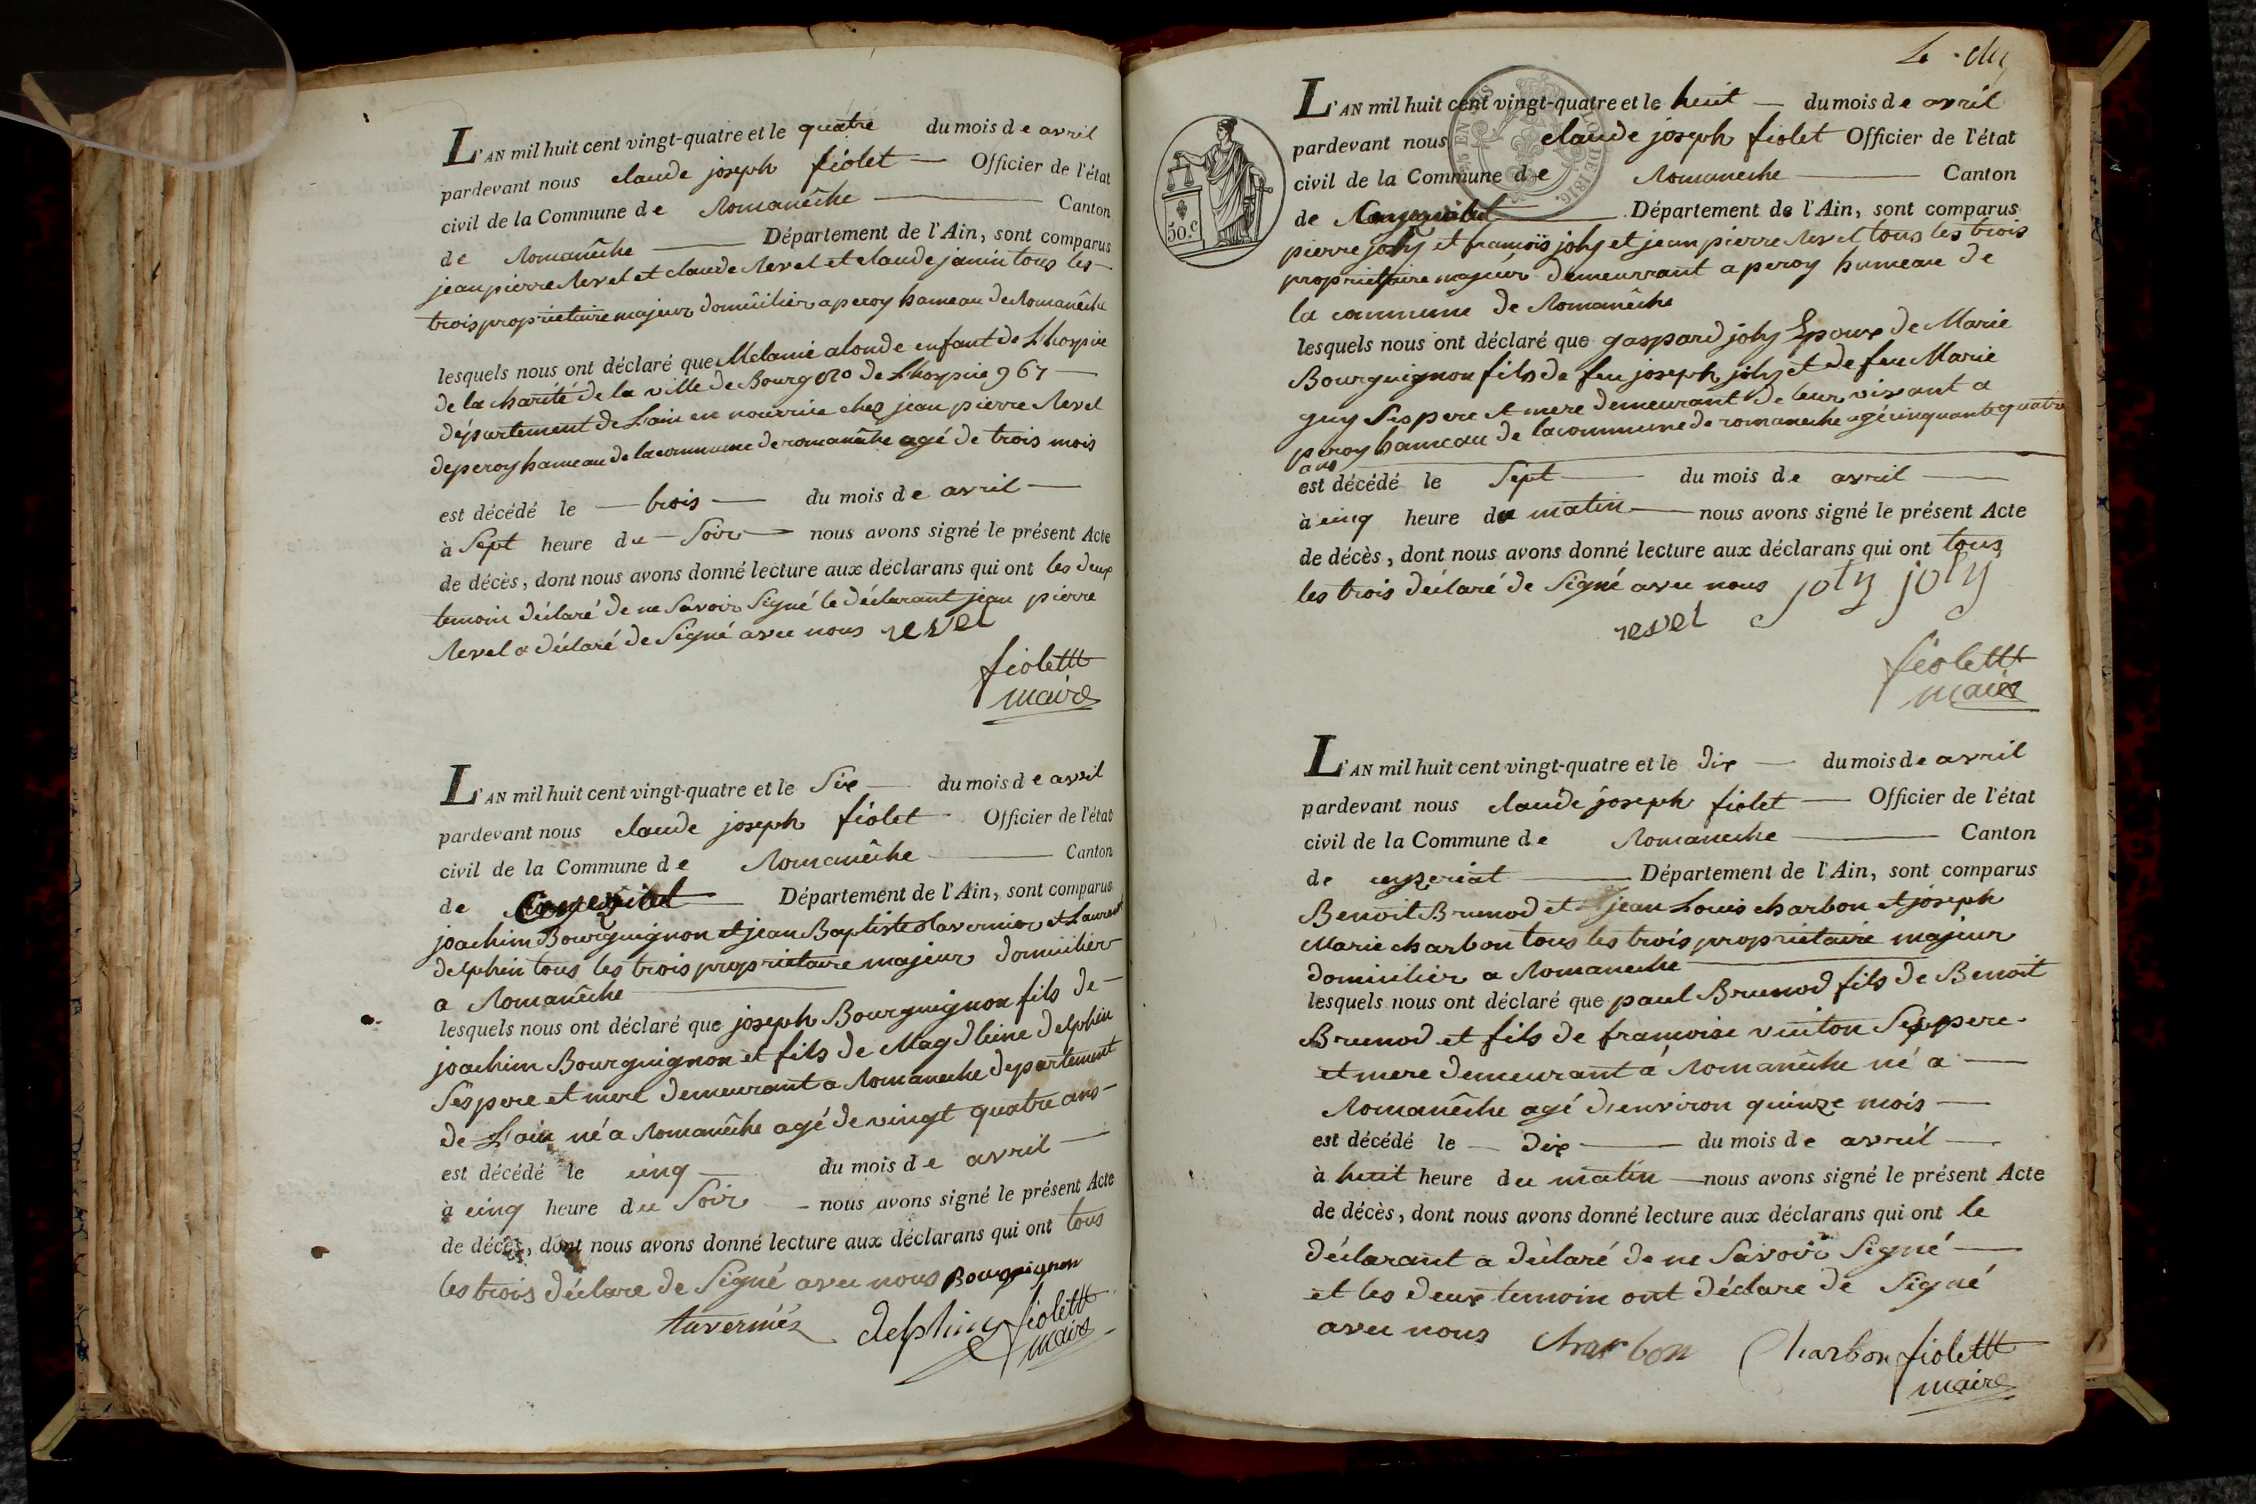 L'AN mil huit cent vingt-quatre et le quatre du mois de avril
pardevant nous claude joseph fiolet — Officier de l'état
civil de la Commune de Romanêche — Canton
de Romanêche — Département de l'Ain, sont comparus
jean pierre Revel et claude Revel et claude janin tous les
trois propriétaire majeur domiicilier a peroy hameau de Romanêche
lesquels nous ont déclaré que Melanie alonde enfant de L'hospice
de la charité de la ville de Bourg No de L'hospice 967 —
département de L'ain en nourrice chez jean pierre Revel
de peroy hameau de la commune de romanêche agé de trois mois
est décédé le — trois — du mois de avril —
à Sept heure du — Soir — nous avons signé le présent Acte
de décès, dont nous avons donné lecture aux déclarans qui ont les deux
temoin déclaré de ne Savoir Signé le déclarant jean pierre
Revel a déclaré de Signé avec nous revel
fiolettt
maire
L'AN mil huit cent vingt-quatre et le Six — du mois de avril
pardevant nous claude joseph fiolet Officier de l'état
civil de la Commune de Romanêche — Canton
de Ceyzeriat — Département de l'Ain, sont comparus
joachim Bourguignon et jean Baptiste tavernier et Laurent
delphin tous les trois propriétaire majeur domicilier
a Romanêche
lesquels nous ont déclaré que joseph Bourguignon fils de —
joachim Bourguignon et fils de Magdleine delphin
Ses pere et mere demeurant a Romaneche departement
de L'ain né a Romanêche agé de vingt quatre ans —
est décédé le cinq — du mois de avril —
à cinq heure du Soir — nous avons signé le présent Acte
de décès, dont nous avons donné lecture aux déclarans qui ont tous
les trois déclare de Signé avec nous Bourguignon
taverniéz delphin fiolettt
maire
L'AN mil huit cent vingt-quatre et le huit — du mois de avril
pardevant nous claude joseph fiolet Officier de l'état
civil de la Commune de Romaneche — Canton
de Ceyzeriat — Département de l'Ain, sont comparus
50.c
pierre joly et francois joly et jean pierre Revel tous les trois
propriettaire majeur demeurrant a peroy hameau de
la commune de Romanêche
lesquels nous ont déclaré que gaspard joly Epoux de Marie
Bourguignon fils de feu joseph joly et de feu Marie
guy Ses pere et mere demeurant de leur vivant a
peroy hameau de la commune de romaneche agé cinquante quatre
ans
est décédé le Sept — du mois de avril —
à cinq heure du matin — nous avons signé le présent Acte
de décès, dont nous avons donné lecture aux déclarans qui ont tous
les trois déclaré de Signé avec nous joly joly
revel
fiolettt
maire
L'AN mil huit cent vingt-quatre et le dix — du mois de avril
pardevant nous claude joseph fiolet — Officier de l'état
civil de la Commune de Romaneche — Canton
de ceyzeriat — Département de l'Ain, sont comparus
Benoit Brunod et jean Louis charbon et joseph
Marie charbon tous les trois propriétaire majeur
domicilier a Romaneche
lesquels nous ont déclaré que paul Brunod fils de Benoit
Brunod et fils de francoise viciton Ses pere
et mere demeurant a Romanêche né a —
Romanêche agé d'environ quinze mois —
est décédé le — dix — du mois de avril —
à huit heure du matin — nous avons signé le présent Acte
de décès, dont nous avons donné lecture aux déclarans qui ont le
déclarant a déclaré de ne Savoir Signé —
et les deux temoin ont déclare de Signé
avec nous charbon Charbon fiolettt
maire